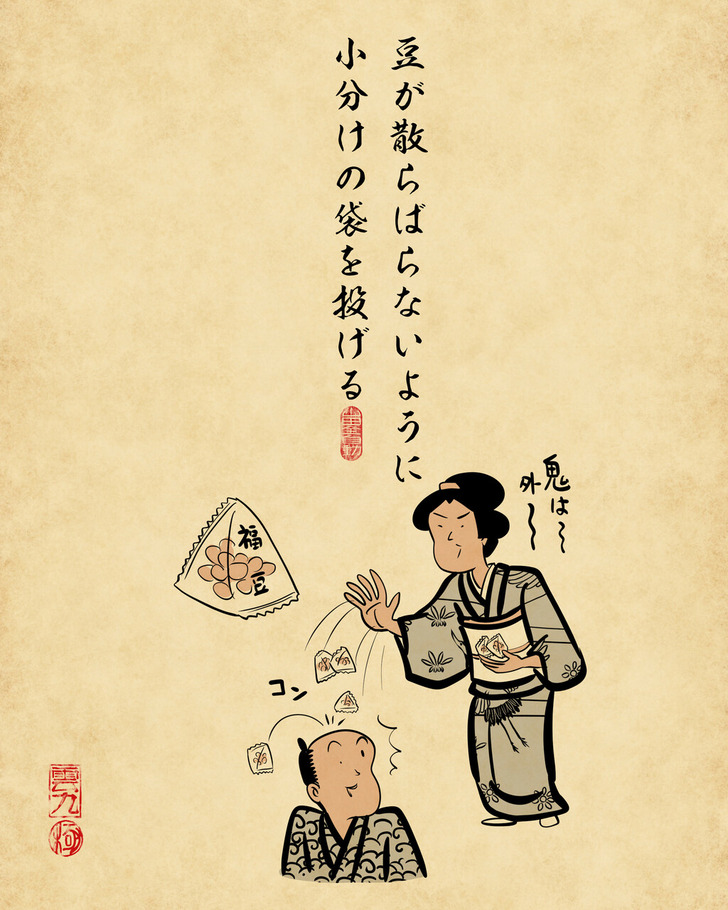 豆が散らばらないように
小分けの袋を投げる
鬼は〜
外〜
福豆
コン